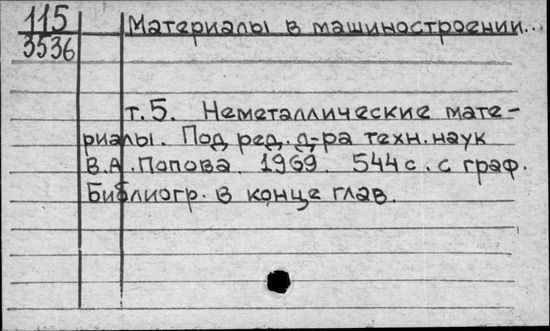 115 Материалы в машиностроении...
3536
т. 5. Неметаллические мате-
риалы. Под ред. д-ра техн. наук
В.А. Попова. 1969. 544 с. с граф.
Библиогр. в конце глав.